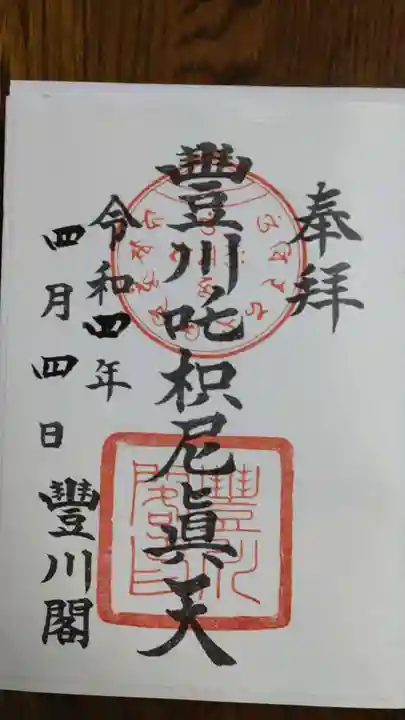 奉拝
豐川吒枳尼眞天
令和四年
四月四日
豐川閣